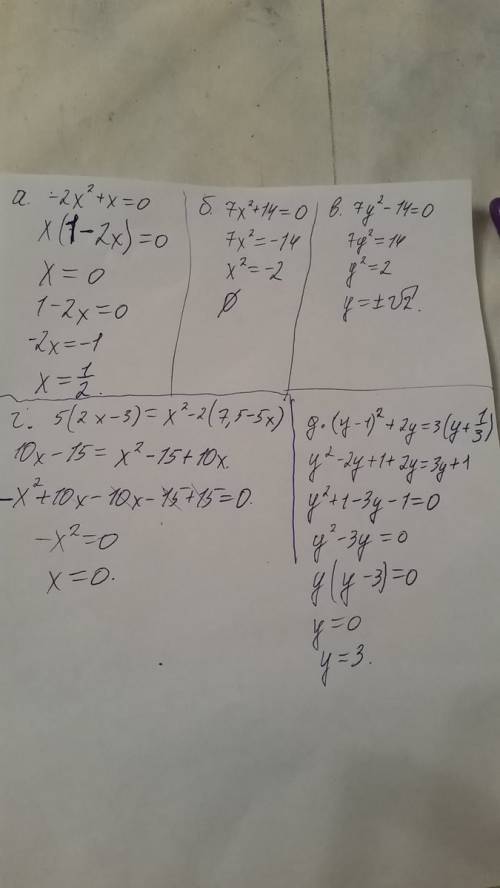 а. -2x²+x=0
x(1-2x)=0
x=0
1-2x=0
-2x=-1
x=1/2.
б. 7x²+14=0
7x²=-14
x²=-2
∅
в. 7y²-14=0
7y²=14
y²=2
y=±√2.
г. 5(2x-3)=x²-2(7,5-5x)
10x-15=x²-15+10x.
-x²+10x-10x-15+15=0.
-x²=0
x=0.
д. (y-1)²+2y=3(y+1/3)
y²-2y+1+2y=3y+1
y²+1-3y-1=0
y²-3y=0
y(y-3)=0
y=0
y=3.